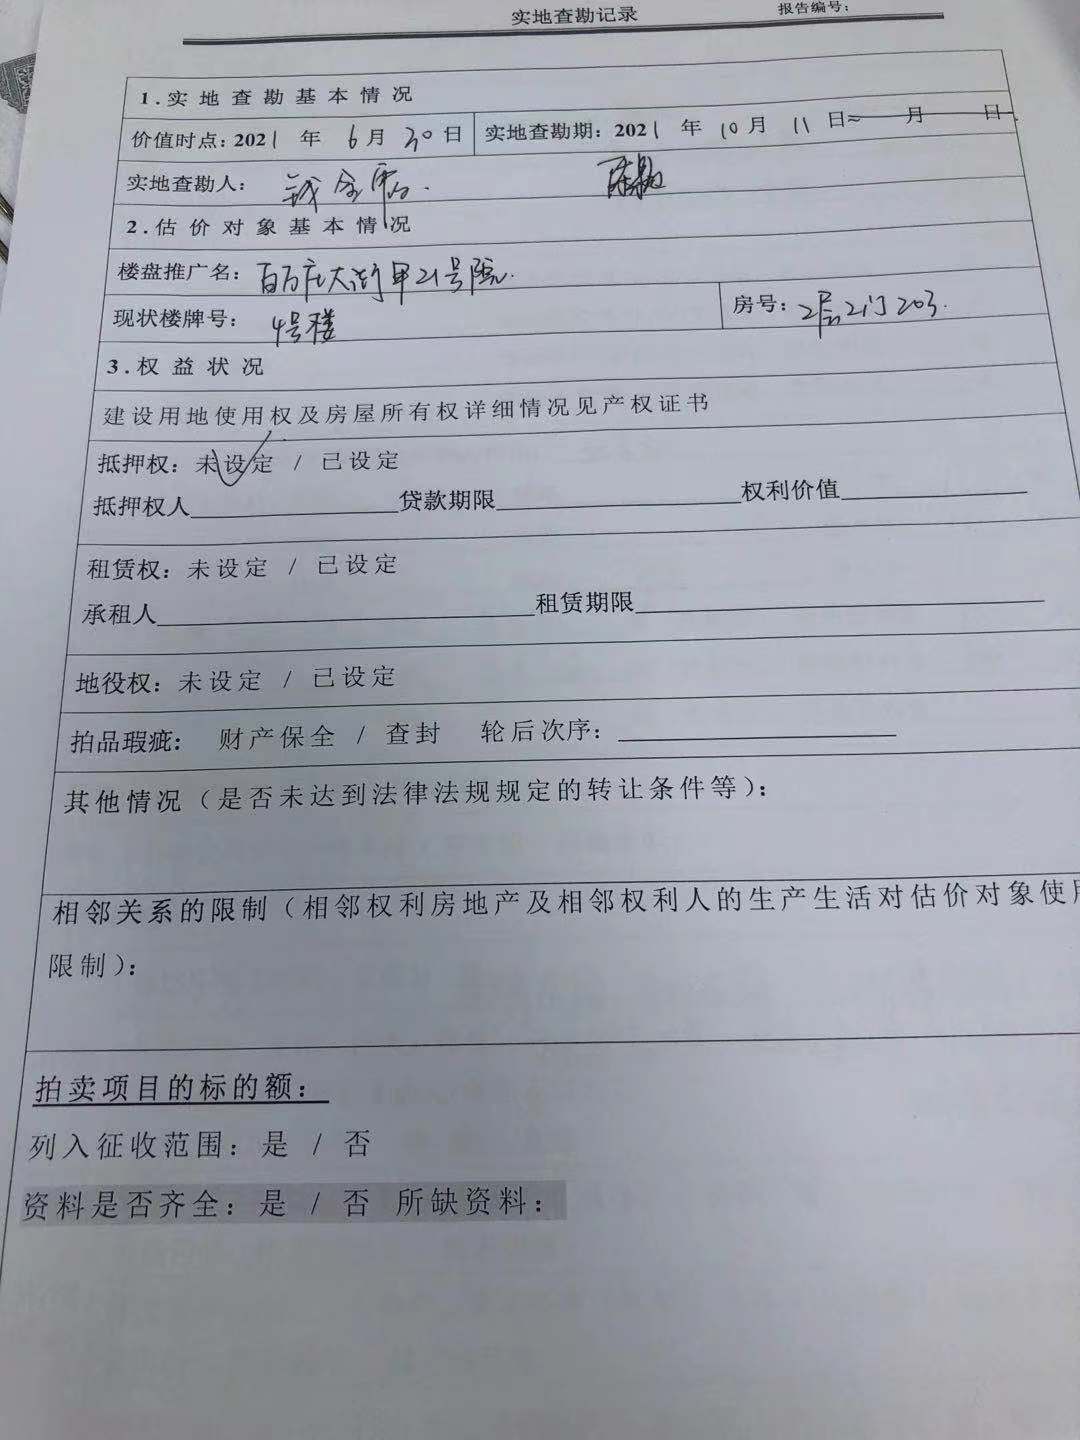 实地查勘记录 报告编号：
1.实地查勘基本情况
价值时点：2021 年 6月 30日 实地查勘期：2021 年 10月 11 日~ 月 日
实地查勘人：
2.估价对象基本情况
楼盘推广名：百万庄大街甲21号院.
现状楼牌号： 4号楼 房号：2层2门203.
3.权益状况
建设用地使用权及房屋所有权详细情况见产权证书
抵押权：未设定 / 已设定
抵押权人 贷款期限 权利价值
租赁权：未设定 / 已设定
承租人 租赁期限
地役权：未设定 / 已设定
拍品瑕疵： 财产保全 / 查封 轮后次序：
其他情况（是否未达到法律法规规定的转让条件等）：
相邻关系的限制（相邻权利房地产及相邻权利人的生产生活对估价对象使用
限制）：
拍卖项目的标的额：
列入征收范围：是 / 否
资料是否齐全：是 / 否 所缺资料：